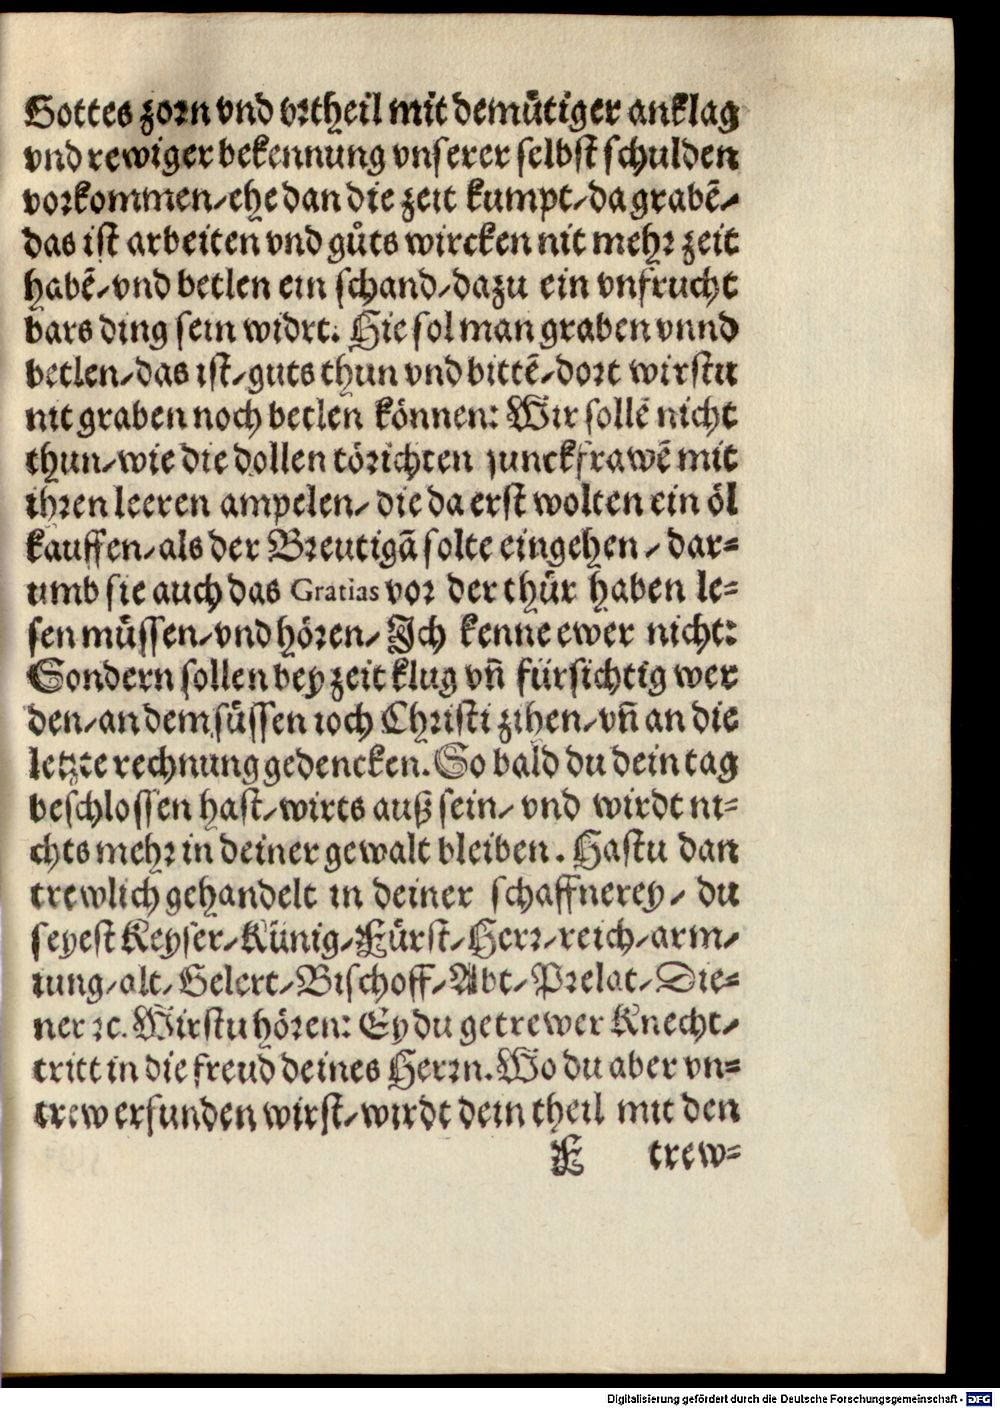 Gottes zorn vnd vrtheil mit demütiger anklag
vnd rewiger bekennung vnserer selbst schulden
vorkommen/ ehe dan die zeit kumpt/ da grabē/
das ist arbeiten vnd gůts wircken nit mehr zeit
habē/ vnd betlen ein schand/ dazu ein vnfrucht
bars ding sein widrt. Hie sol man graben vnnd
betlen/ das ist/ guts thun vnd bittē/ dort wirstu
nit graben noch betlen können: Wir sollē nicht
thun/ wie die dollen törichten junckfrawē mit
ihren leeren ampelen/ die da erst wolten ein öl
kauffen/ als der Breutigā solte eingehen/ dar=
umb sie auch das Gratias vor der thür haben le=
sen müssen/ vnd hören/ Ich kenne ewer nicht:
Sondern sollen bey zeit klug vñ fürsichtig wer
den/ an dem süssen ioch Christi zihen/ vñ an die
letzte rechnung gedencken. So bald du dein tag
beschlossen hast/ wirts auß sein/ vnd wirdt ni=
chts mehr in deiner gewalt bleiben. Hastu dan
trewlich gehandelt in deiner schaffnerey/ du
seyest Keyser/ Künig/ Fürst/ Herr/ reich/ arm/
iung/ alt/ Gelert/ Bischoff/ Abt/ Prelat/ Die=
ner ꝛc. Wirstu hören: Ey du getrewer Knecht/
tritt in die freud deines Herrn. Wo du aber vn=
trew erfunden wirst/ wirdt dein theil mit den
F trew=
Digitalisierung gefördert durch die Deutsche Forschungsgemeinschaft - DFG